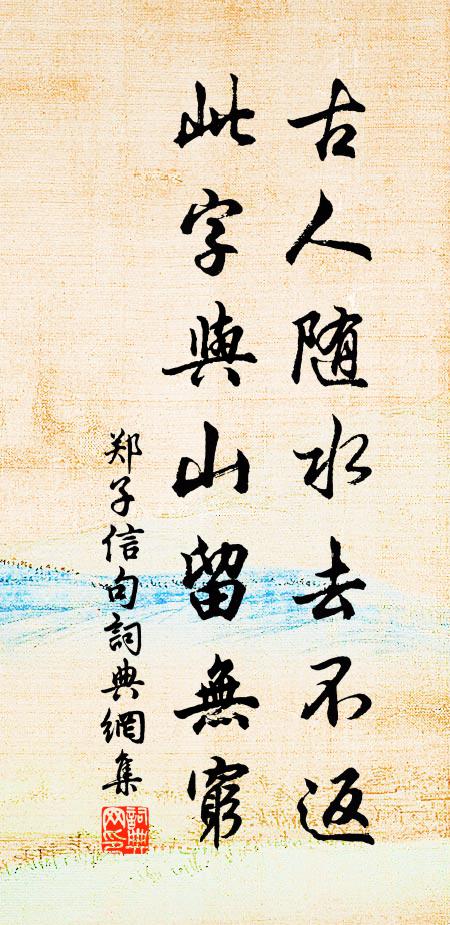 古人随水去不返
此字與山留無窮
郑子信句詞典網集
詞典网印